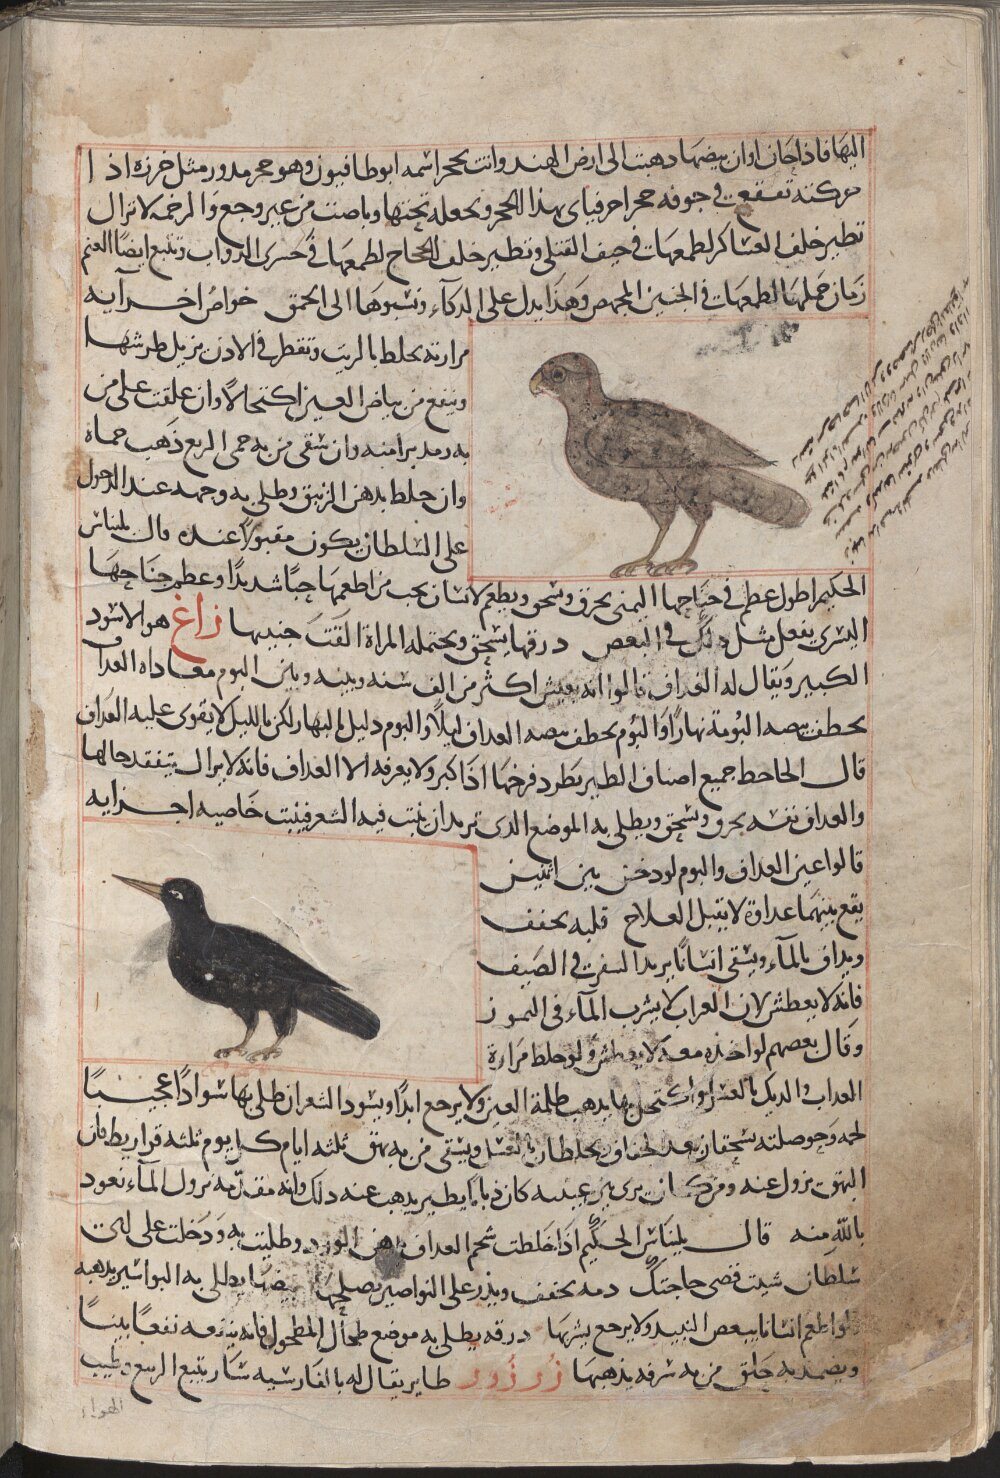 اليها فاذا حان اوان بيضها ذهبت الى ارض الهند واتت بحجر اسمه ابوطافيون وهو حجر مدور مثل خرزه اذا
حركته تقعقع في جوفه حجر اخر فياى بهذا الحجر ويجعله تحتها وباضت من غير وجع والرخمه لا تزال
تطير خلف العساكر لطمعها في جيف القتلى وتطير خلف الحجاج لطمعها في حسرى الدواب وتتبع ايضا الغنم
زمان حملها لطمعها في الجنين المجهض وهذا يدل على الذكاء ونسبوها الى الحمق خواص اجزايه
مرارته يخلط بالزيت وتقطر في الاذن يزيل طرشها
وينفع من بياض العين اكتحالا وان علقت على من
به رمد برا منه وان سقى من به حمى الربع ذهب حماه
وان خلط بدهن الزنبق وطلى به وجهه عند الدخول
على السلطان يكون مقبولا عنده قال بليناس
الحكيم اطول عظم في جناحها اليمنى يحرق ويسحق ويطعم لانسان يحب من اطعمها حبا شديدا وعظم جناحها
اليسرى يفعل مثل ذلك في البغض درقها يسحق ويحتمله المراة القت جنينها زاغ هو الاسود
الكبير ويقال له الغداف قالوا انه يعيش اكثر من الف سنه وبينه وبين البوم معاداه الغداف
يخطف بيضه البومة نهارا والبوم يخطف بيضه الغداف ليلا والبوم ذليل بالنهار لكن بالليل لا يقوى عليه الغداف
قال الجاحظ جميع اصناف الطير يطرد فرخها اذا كبر ولا يعرفه الا الغداف فانه لا يزال يتفقد حالها
والغداف نفسه يحرق ويسحق ويطلى به الموضع الذى تريد ان ينبت فيه الشعر فينبت خاصيه اجزايه
قالوا عين الغداف والبوم لو دخن بين اثنين
يقع بينهما عداوة لا يقبل العلاج قلبه يجفف
ويداف بالماء ويسقى انسانا يريد السفر في الصيف
فانه لا يعطش لان الغراب لا يشرب الماء في التموز
وقال بعضهم لو اخذه معه لا يعطش ولو خلط مرارة
الغداف والديك بالعسل واكتحل بها يذهب ظلمة العين ولا يرجع ابدا ويسود الشعر ان طلى بها سوادا عجيبا
لحمه وحوصلته يسحقان بعد الجفاف ويخلطان بالعسل ويسقى من به بهق ثلثه ايام كل يوم ثلثه قراريط فان
البهق يزول عنه ومن كان يرى بين عينيه كان ذبابا يطير يذهب عنه ذلك وانه مقدمه نزول الماء نعوذ
بالله منه قال بليناس الحكيم اذا خلطت شحم الغداف بدهن الورد وطليت به ودخلت على اى
سلطان شيت قضى حاجتك دمه يجفف ويذر على النواصير يصلحها بيضها يطلى به البواسير يذهبه
لو اطعم انسانا يبغض النبيذ ولا يرجع يشربها درقه يطلى به موضع طحال المطحول فانه ينفعه نفعا بينا
ويضمد به حلق من به شرقه يذهبها زرزور طاير يقال له بالفارسيه سار يتبع الربيع وطيب
الهواء